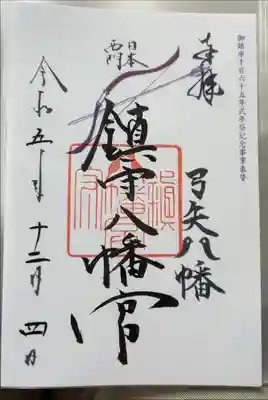 御鎮座千百六十五年式年祭記念事業奉賛
奉拝
弓矢八幡
日本
西門
鎮守八幡宮
令和五年十二月四日